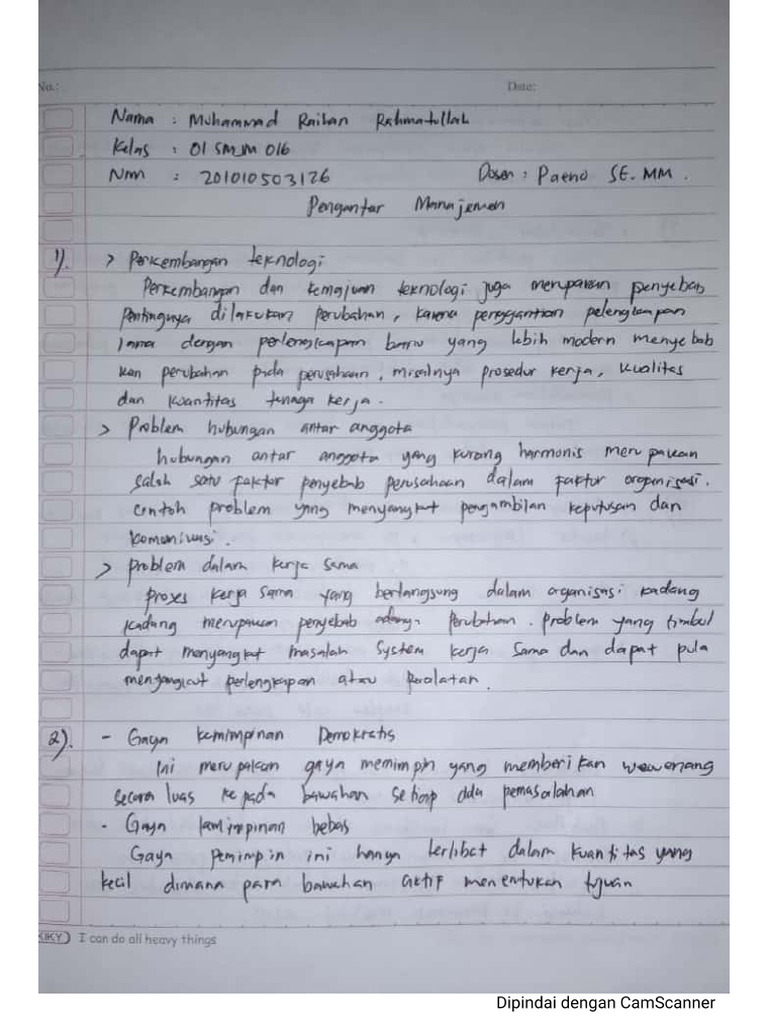 No.:
Date:
Nama : Muhammad Raihan Rahmatullah
Kelas : 01 SMJM 016
Nim : 201010503126 Dosen : Paeno SE. MM.
Pengantar Manajemen
1). > Perkembangan teknologi
Perkembangan dan kemajuan teknologi juga merupakan penyebab
pentingnya dilakukan perubahan, karena penggantian pelengkapan
lama dengan perlengkapan baru yang lebih modern menyebab
kan perubahan pada perusahaan, misalnya prosedur kerja, kualitas
dan kuantitas tenaga kerja.
> Problem hubungan antar anggota
hubungan antar anggota yang kurang harmonis merupakan
salah satu faktor penyebab perusahaan dalam faktor organisasi.
contoh problem yang menyangkut pengambilan keputusan dan
komunikasi.
> problem dalam kerja sama
proses kerja sama yang berlangsung dalam organisasi kadang
kadang merupakan penyebab adanya perubahan. problem yang timbul
dapat menyangkut masalah system kerja sama dan dapat pula
menyangkut perlengkapan atau peralatan.
2). - Gaya kemimpinan Demokratis
Ini merupakan gaya memimpin yang memberikan wewenang
secara luas kepada bawahan setiap ada pemasalahan
- Gaya kemimpinan bebas
Gaya pemimpin ini hanya terlibat dalam kuantitas yang
kecil dimana para bawahan aktif menentukan tujuan
KIKY I can do all heavy things
Dipindai dengan CamScanner